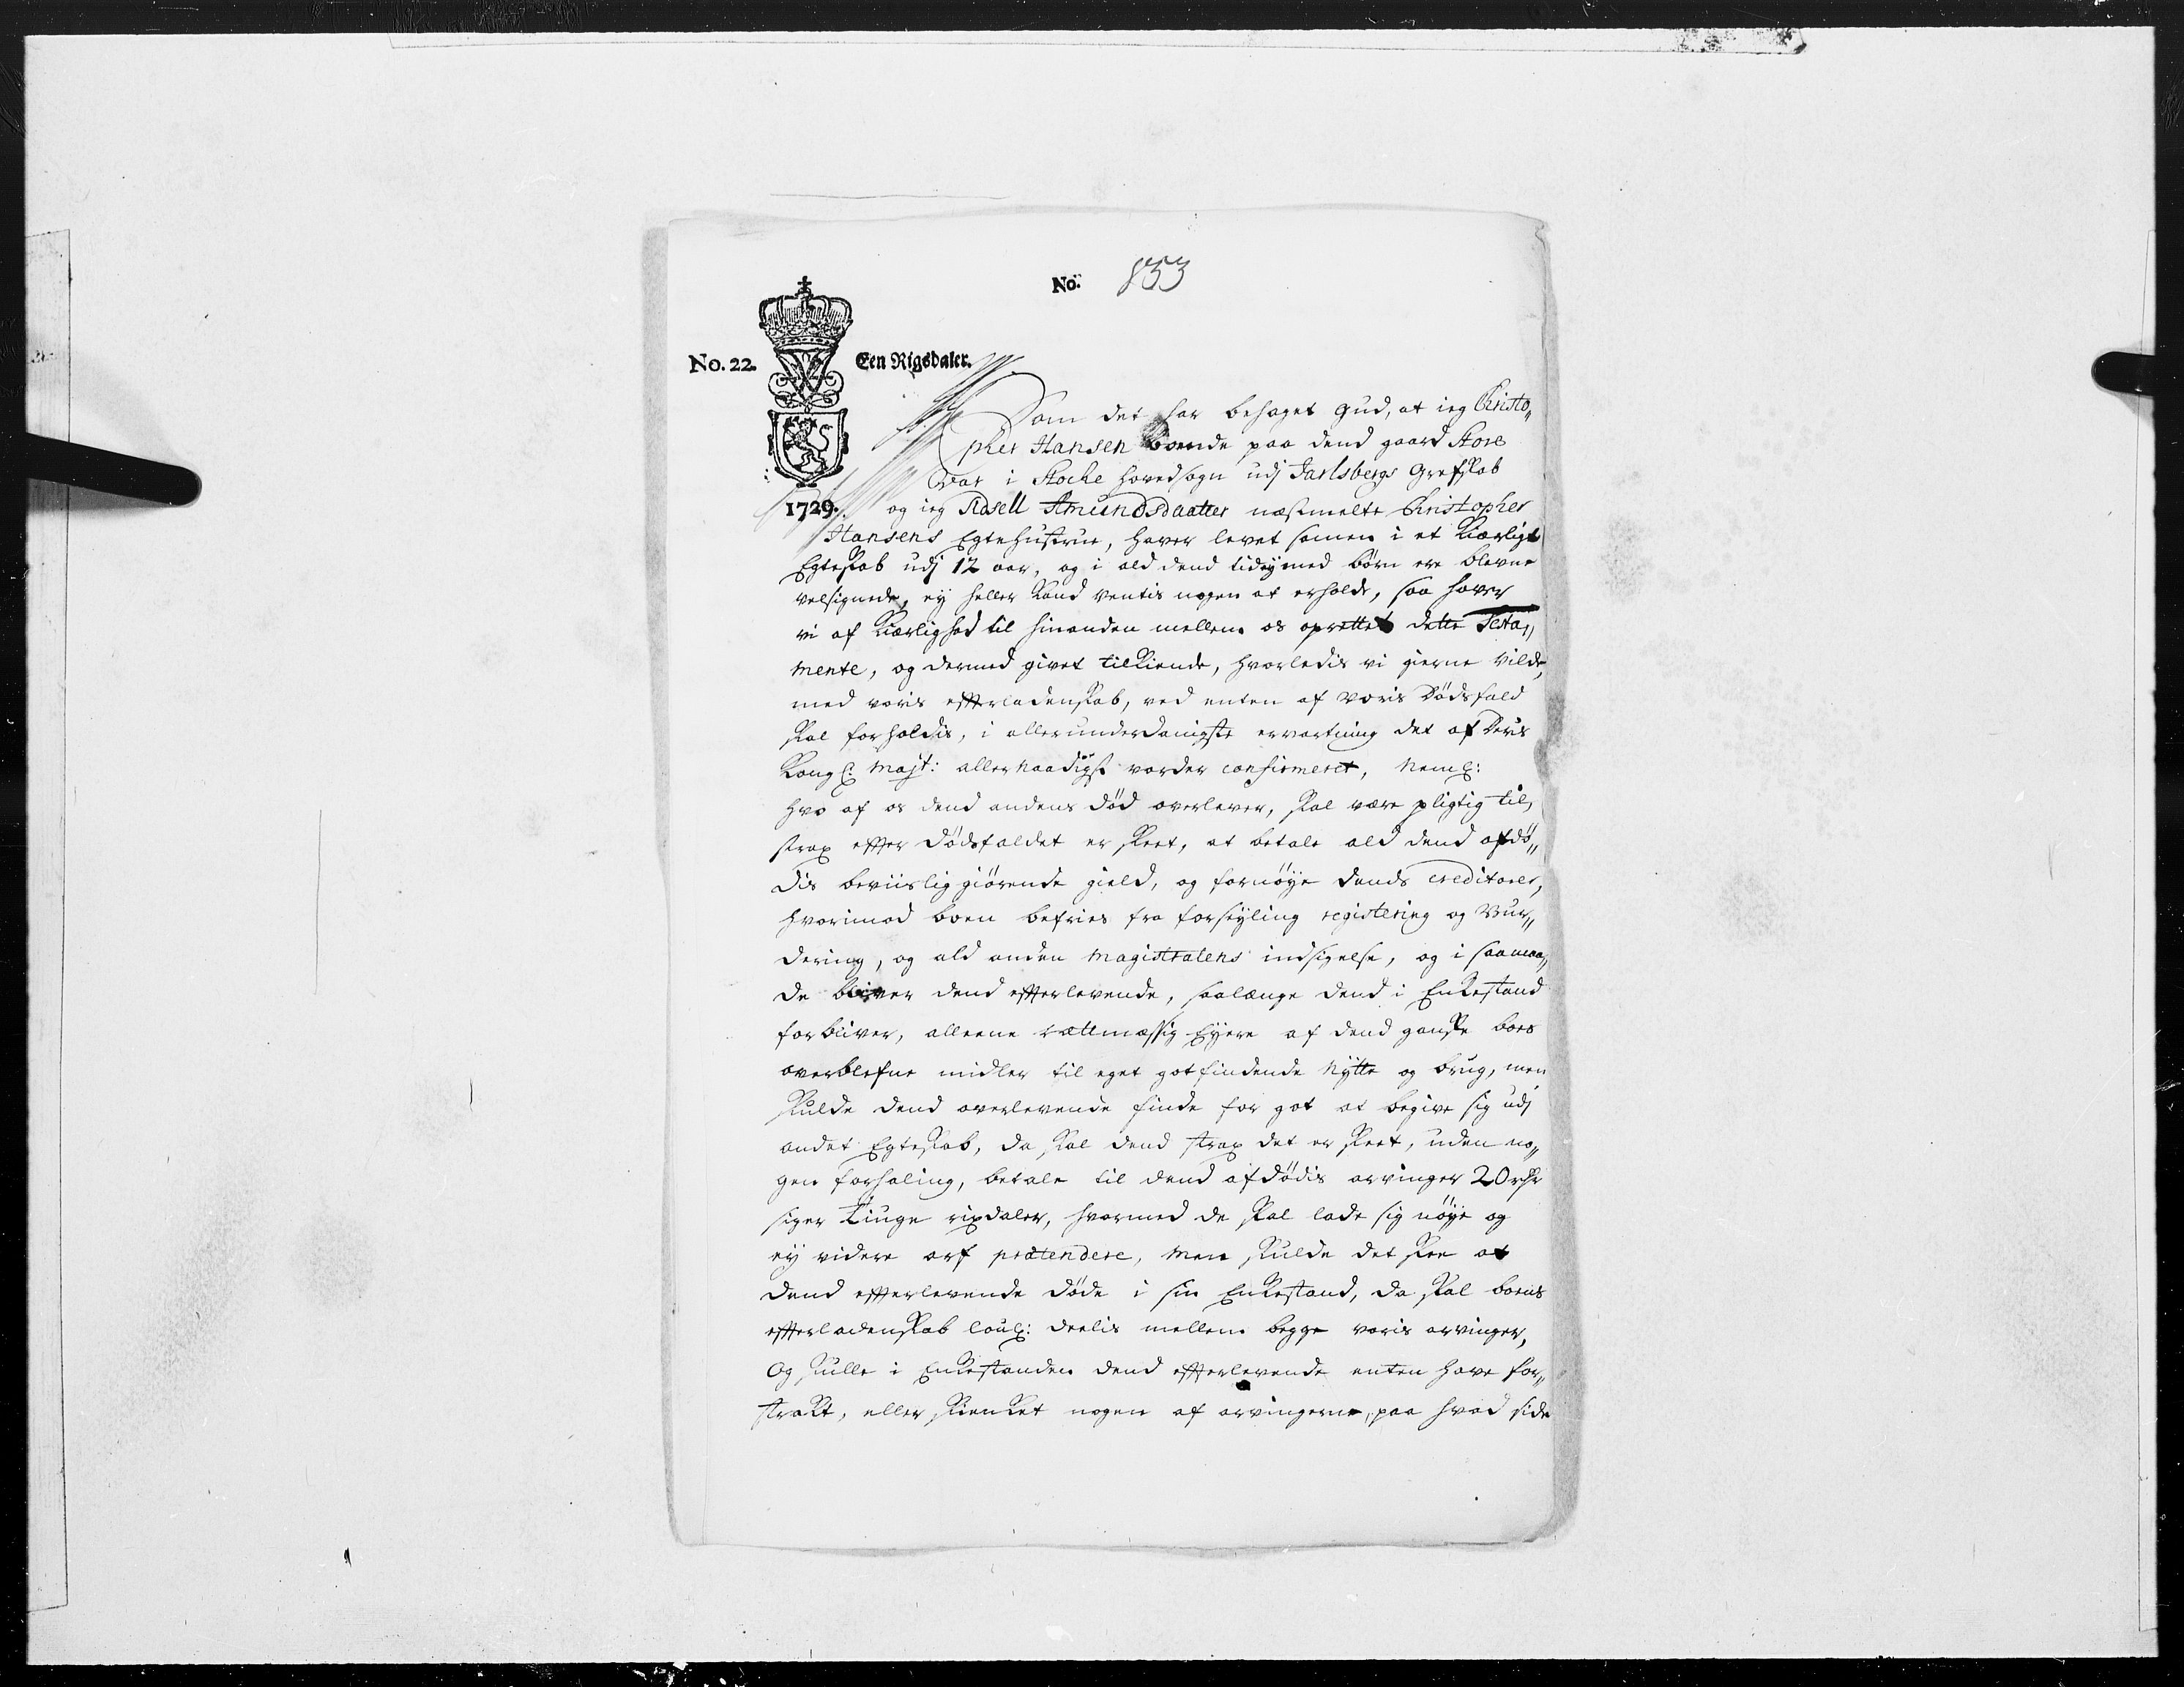 No: 853
No. 22. Een Rigsdaler.
1729.
Som det har behaget Gud, at ieg Christo„
pher Hansen boende paa dend gaard Store
Var i Stoche hovedsogn udj Jarlsbergs Grefskab
og ieg Sidsell Amundsdaatter næstmelte Christopher
Hansens Egtehustrue, haver levet samen i et kierligt
Egteskab udj 12 aar, og i ald dend tid ey med børn ere blevne
velsignede, ey heller kand ventis nogen at erholde, saa haver
vi af kierlighed til hinanden mellem os oprettet dette Testa„
mente, og dermed givet tilkiende, hvorledis vi gierne vilde,
med voris efterladenskab, ved enten af voris Dødsfald
skal forholdis, i allerunderdanigste ervartning det af Deris
Kongl: Majt: allernaadigst vorder confirmeret, Neml:
hvo af os dend andens død overlever, skal være pligtig til,
strax efter dødsfaldet er skeet, at betale ald dend afdø„
dis beviislig giørende gield, og fornøye dends creditorer,
hvorimod boen befries fra forseyling registering og Vur„
dering, og ald anden Magistratens indsigelse, og i saamaa„
de bliver dend efterlevende, saalænge dend i Enkestand
forbliver, alleene rættmæssig Eyere af dend ganske boes
overblefne midler til eget gotfindende Nytte og brug, men
skulde dend overlevende finde for got at begive sig udj
andet Egteskab, da skal dend strax det er skeet, uden no„
gen forhaling, betale til dend afdødis arvinger 20 rdr
siger tiuge rixdaler, hvormed de skal lade sig nøye og
ey videre arf prætendere, Men skulde det skee at
dend efterlevende døde i sin Enkestand, da skal boens
efterladenskab loul: deelis mellem begge voris arvinger,
Og skulle i Enkestanden dend efterlevende enten have for„
strakt, eller skienket nogen af arvingerne, paa hvad side